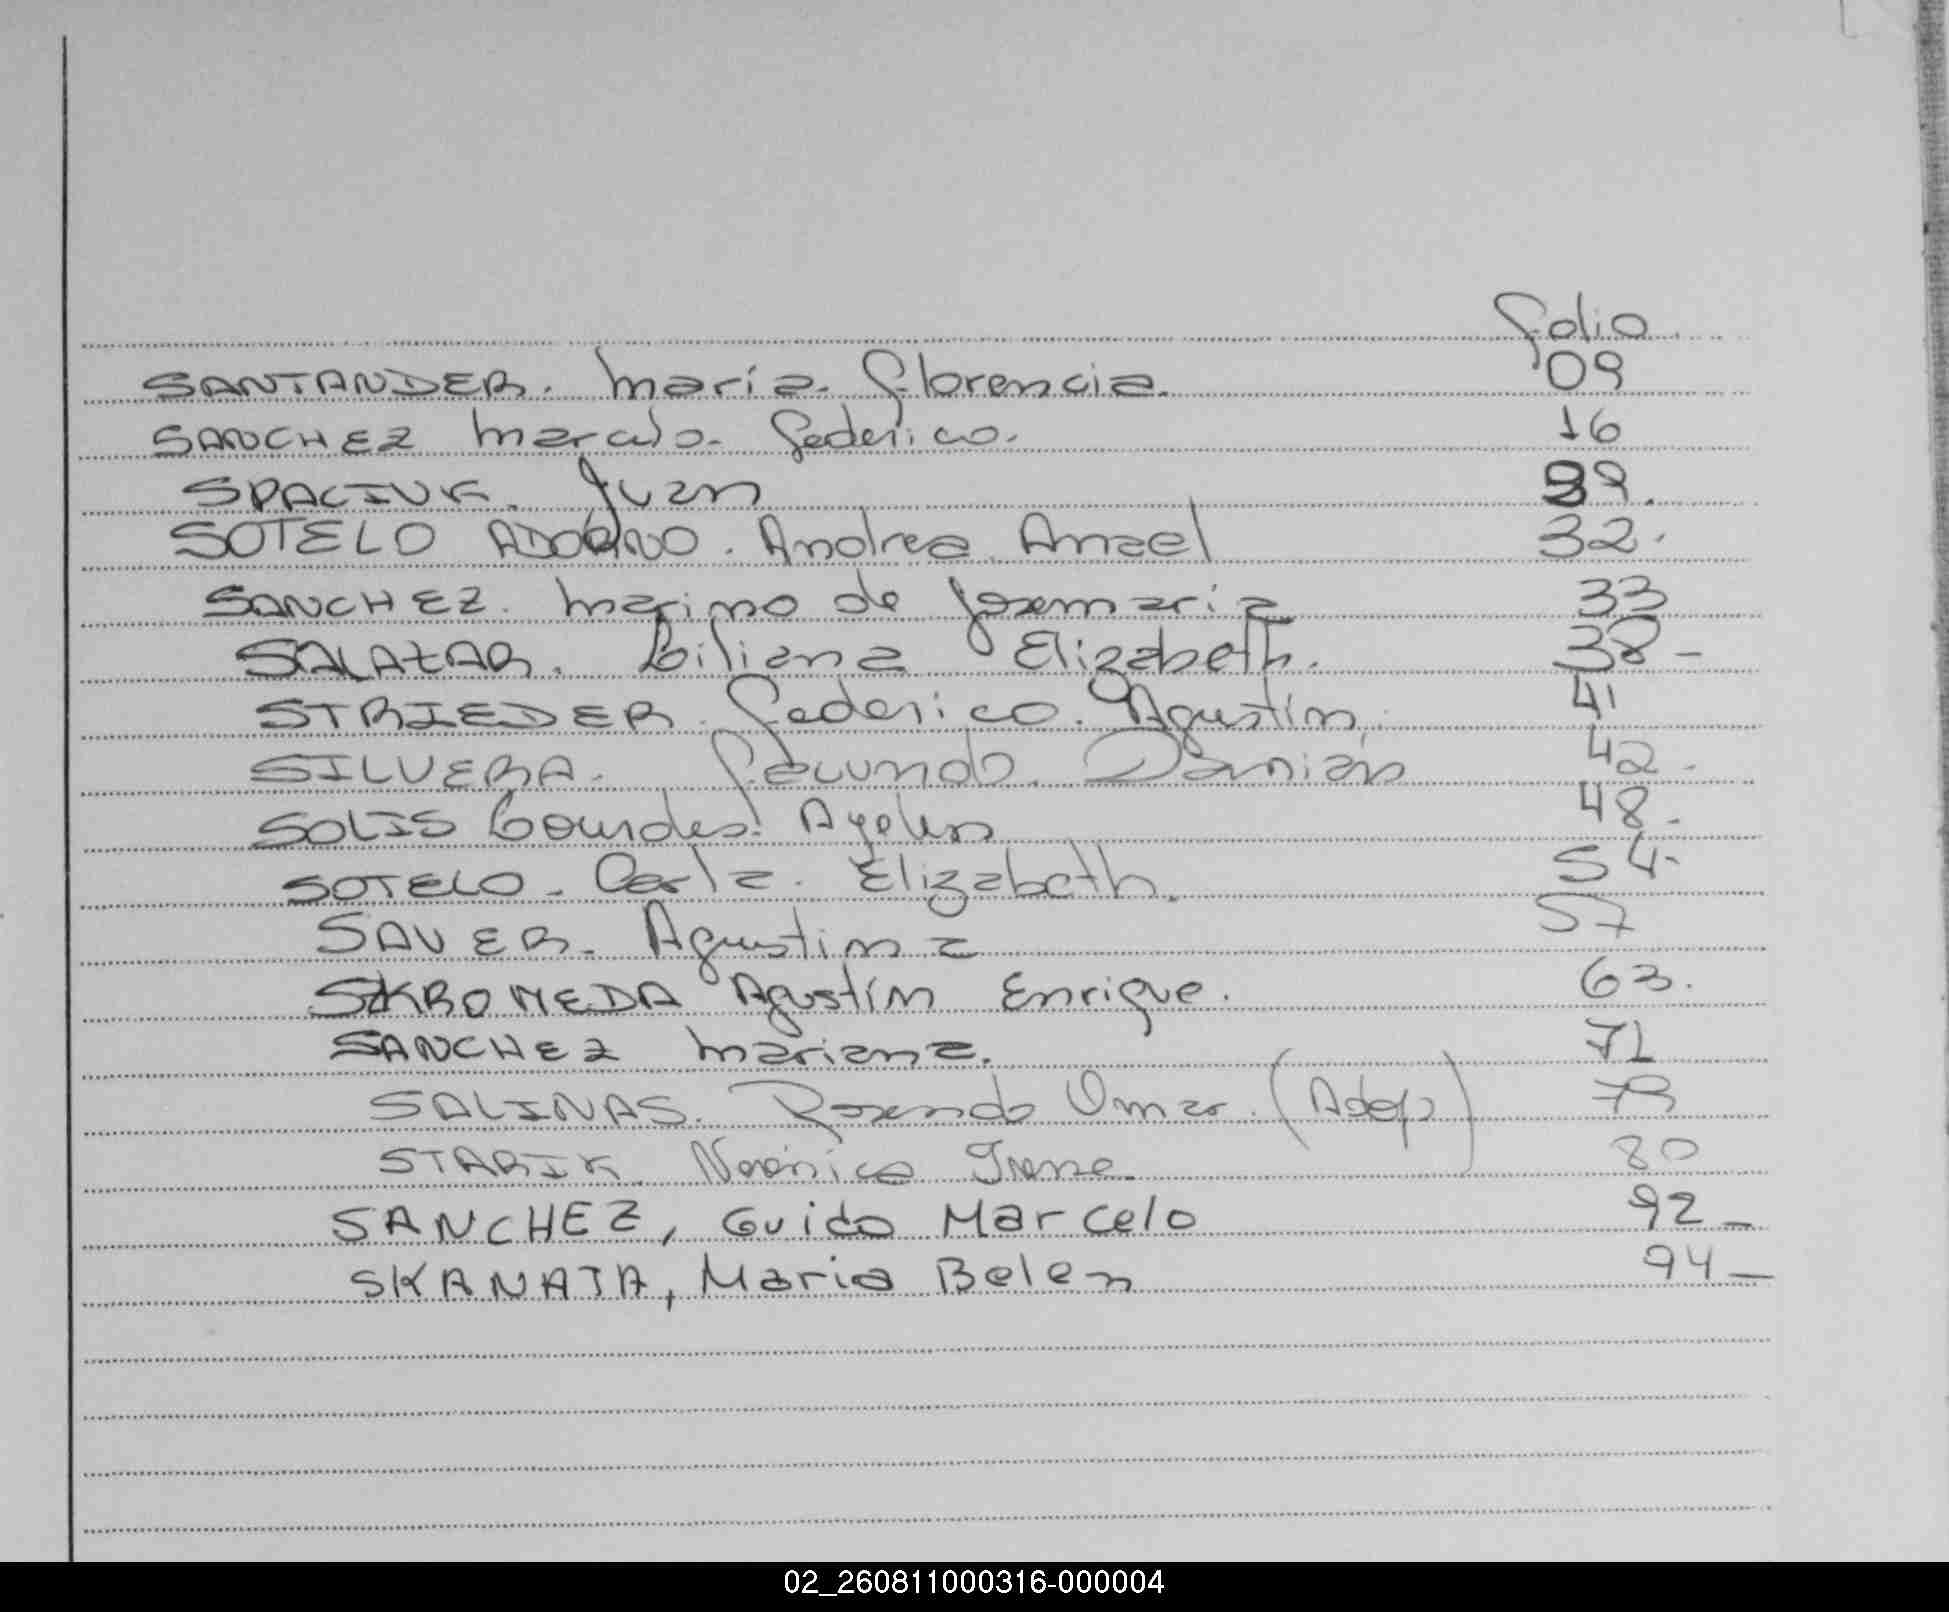 Folio
SANTANDER. Maria. Florencia. 09
SANCHEZ Marcelo. Federico. 16
SPACIUK. Juan 29.
SOTELO ADORNO. Andrea Anael 32.
SANCHEZ. Marino de Josemaria 33
SALAZAR. Liliana Elizabeth. 38-
STRIEDER. Federico. Agustín. 41
SILVERA. Facundo. Damián 42.
SOLIS Lourdes. Ayelen 48.
SOTELO. Carla. Elizabeth. 54-
SAUER. Agustina 57
SKROMEDA Agustín Enrique. 63.
SANCHEZ Mariana. 71
SALINAS. Rosendo Omar. (Adop) 73
STARIK. Verónica Irene. 80
SANCHEZ, Guido Marcelo 92-
SKANATA, Maria Belen 94-
02_260811000316-000004